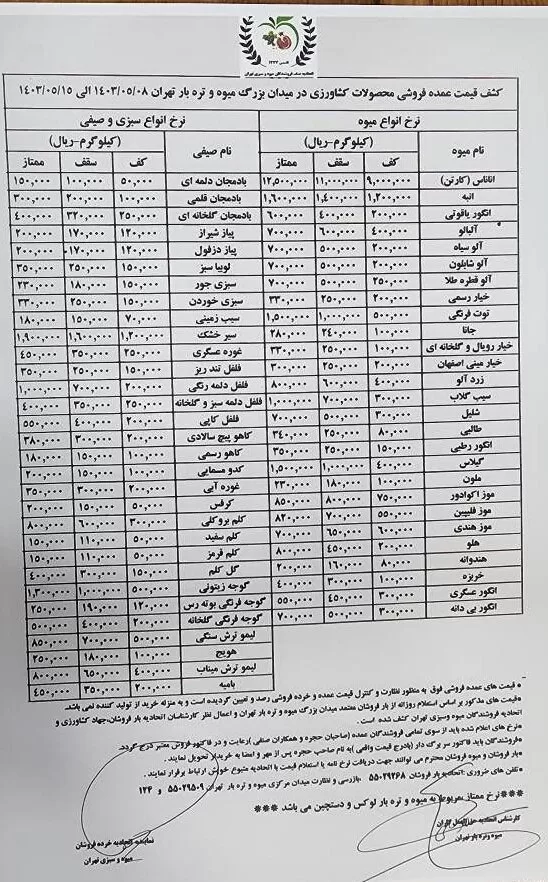 اتحادیه صنف فروشندگان میوه و سبزی تهران
کشف قیمت عمده فروشی محصولات کشاورزی در میدان بزرگ میوه و تره بار تهران ۱۴۰۳/۰۵/۰۸ الی ۱۴۰۳/۰۵/۱۵
نرخ انواع میوه نرخ انواع سبزی و صیفی
نام میوه (کیلوگرم-ریال) نام صیفی (کیلوگرم-ریال)
کف سقف ممتاز کف سقف ممتاز
اناناس (کارتن) ۹,۰۰۰,۰۰۰ ۱۱,۰۰۰,۰۰۰ ۱۲,۵۰۰,۰۰۰ بادمجان دلمه ای ۵۰,۰۰۰ ۱۰۰,۰۰۰ ۱۵۰,۰۰۰
انبه ۱,۲۰۰,۰۰۰ ۱,۴۰۰,۰۰۰ ۱,۶۰۰,۰۰۰ بادمجان قلمی ۱۰۰,۰۰۰ ۲۰۰,۰۰۰ ۳۰۰,۰۰۰
انگور یاقوتی ۲۰۰,۰۰۰ ۴۰۰,۰۰۰ ۶۰۰,۰۰۰ بادمجان گلخانه ای ۲۵۰,۰۰۰ ۳۲۰,۰۰۰ ۴۰۰,۰۰۰
آلبالو ۴۰۰,۰۰۰ ۶۰۰,۰۰۰ ۷۰۰,۰۰۰ پیاز شیراز ۱۲۰,۰۰۰ ۱۷۰,۰۰۰ ۲۰۰,۰۰۰
آلو سیاه ۲۰۰,۰۰۰ ۵۰۰,۰۰۰ ۷۰۰,۰۰۰ پیاز دزفول ۱۲۰,۰۰۰ ۱۷۰,۰۰۰ ۲۰۰,۰۰۰
آلو شابلون ۲۰۰,۰۰۰ ۵۰۰,۰۰۰ ۷۰۰,۰۰۰ لوبیا سبز ۱۵۰,۰۰۰ ۲۵۰,۰۰۰ ۳۵۰,۰۰۰
آلو قطره طلا ۲۵۰,۰۰۰ ۵۰۰,۰۰۰ ۷۰۰,۰۰۰ سبزی جور ۱۵۰,۰۰۰ ۱۸۰,۰۰۰ ۲۳۰,۰۰۰
خیار رسمی ۲۰۰,۰۰۰ ۲۵۰,۰۰۰ ۳۳۰,۰۰۰ سبزی خوردن ۱۵۰,۰۰۰ ۲۵۰,۰۰۰ ۳۳۰,۰۰۰
توت فرنگی ۵۰۰,۰۰۰ ۱,۰۰۰,۰۰۰ ۱,۵۰۰,۰۰۰ سیب زمینی ۷۰,۰۰۰ ۱۵۰,۰۰۰ ۱۸۰,۰۰۰
جانا ۱۰۰,۰۰۰ ۲۴۰,۰۰۰ ۲۸۰,۰۰۰ سیر خشک ۱,۲۰۰,۰۰۰ ۱,۶۰۰,۰۰۰ ۱,۹۰۰,۰۰۰
خیار رویال و گلخانه ای ۱۰۰,۰۰۰ ۲۵۰,۰۰۰ ۳۳۰,۰۰۰ غوره عسگری ۲۵۰,۰۰۰ ۳۵۰,۰۰۰ ۴۵۰,۰۰۰
خیار مینی اصفهان ۲۰۰,۰۰۰ ۲۵۰,۰۰۰ ۳۰۰,۰۰۰ فلفل تند ریز ۱۵۰,۰۰۰ ۲۵۰,۰۰۰ ۳۵۰,۰۰۰
زرد آلو ۴۰۰,۰۰۰ ۶۰۰,۰۰۰ ۸۰۰,۰۰۰ فلفل دلمه رنگی ۲۰۰,۰۰۰ ۷۰۰,۰۰۰ ۱,۰۰۰,۰۰۰
سیب گلاب ۳۰۰,۰۰۰ ۷۰۰,۰۰۰ ۱,۰۰۰,۰۰۰ فلفل دلمه سبز و گلخانه ۲۵۰,۰۰۰ ۳۵۰,۰۰۰ ۴۰۰,۰۰۰
شلیل ۳۰۰,۰۰۰ ۵۰۰,۰۰۰ ۷۰۰,۰۰۰ فلفل کاپی ۲۰۰,۰۰۰ ۴۰۰,۰۰۰ ۵۵۰,۰۰۰
طالبی ۸۰,۰۰۰ ۲۵۰,۰۰۰ ۳۴۰,۰۰۰ کاهو پیچ سالادی ۲۰۰,۰۰۰ ۳۰۰,۰۰۰ ۳۸۰,۰۰۰
انگور رطبی ۱۵۰,۰۰۰ ۲۵۰,۰۰۰ ۳۵۰,۰۰۰ کاهو رسمی ۱۰۰,۰۰۰ ۱۵۰,۰۰۰ ۱۸۰,۰۰۰
گیلاس ۴۰۰,۰۰۰ ۱,۰۰۰,۰۰۰ ۱,۵۰۰,۰۰۰ کدو مسمایی ۱۰۰,۰۰۰ ۱۵۰,۰۰۰ ۲۰۰,۰۰۰
ملون ۱۰۰,۰۰۰ ۱۸۰,۰۰۰ ۲۳۰,۰۰۰ غوره آبی ۲۰۰,۰۰۰ ۳۰۰,۰۰۰ ۳۵۰,۰۰۰
موز اکوادور ۷۵۰,۰۰۰ ۸۰۰,۰۰۰ ۸۵۰,۰۰۰ کرفس ۵۰,۰۰۰ ۱۵۰,۰۰۰ ۲۰۰,۰۰۰
موز فلیپین ۵۵۰,۰۰۰ ۷۰۰,۰۰۰ ۸۲۰,۰۰۰ کلم بروکلی ۳۰۰,۰۰۰ ۶۰۰,۰۰۰ ۸۰۰,۰۰۰
موز هندی ۶۰۰,۰۰۰ ۶۵۰,۰۰۰ ۷۰۰,۰۰۰ کلم سفید ۵۰,۰۰۰ ۱۱۰,۰۰۰ ۱۵۰,۰۰۰
هلو ۲۰۰,۰۰۰ ۴۵۰,۰۰۰ ۸۰۰,۰۰۰ کلم قرمز ۵۰,۰۰۰ ۱۱۰,۰۰۰ ۱۵۰,۰۰۰
هندوانه ۸۰,۰۰۰ ۱۶۰,۰۰۰ ۲۰۰,۰۰۰ گل کلم ۱۵۰,۰۰۰ ۳۰۰,۰۰۰ ۴۰۰,۰۰۰
خربزه ۱۰۰,۰۰۰ ۳۰۰,۰۰۰ ۴۰۰,۰۰۰ گوجه زیتونی ۵۰۰,۰۰۰ ۱,۰۰۰,۰۰۰ ۱,۳۰۰,۰۰۰
انگور عسکری ۳۰۰,۰۰۰ ۴۵۰,۰۰۰ ۵۵۰,۰۰۰ گوجه فرنگی بوته رس ۱۲۰,۰۰۰ ۱۹۰,۰۰۰ ۲۵۰,۰۰۰
انگور بی دانه ۳۰۰,۰۰۰ ۵۰۰,۰۰۰ ۷۰۰,۰۰۰ گوجه فرنگی گلخانه ۲۰۰,۰۰۰ ۴۰۰,۰۰۰ ۵۰۰,۰۰۰
لیمو ترش سنگی ۵۰۰,۰۰۰ ۷۰۰,۰۰۰ ۸۵۰,۰۰۰
هویج ۱۰۰,۰۰۰ ۱۸۰,۰۰۰ ۲۵۰,۰۰۰
لیمو ترش میناب ۴۰۰,۰۰۰ ۶۵۰,۰۰۰ ۸۰۰,۰۰۰
بامیه ۲۰۰,۰۰۰ ۳۵۰,۰۰۰ ۴۵۰,۰۰۰
* قیمت های عمده فروشی فوق به منظور نظارت و کنترل قیمت عمده و خرده فروشی رصد و تعیین گردیده است و به منزله خرید از تولید کننده نمی باشد.
* قیمت های مذکور بر اساس استعلام روزانه از بار فروشان معتمد میدان بزرگ میوه و تره بار تهران و اعمال نظر کارشناسان اتحادیه بار فروشان،جهاد کشاورزی و
اتحادیه فروشندگان میوه وسبزی تهران کشف شده است.
* نرخ های اعلام شده باید از سوی تمامی فروشندگان عمده (صاحبان حجره و همکاران صنفی) رعایت و در فاکتور فروش معتبر درج گردد.
* فروشندگان باید فاکتور سربرگ دار (بادرج قیمت واقعی) به نام صاحب حجره پس از مهر و امضا به خریدار تحویل نمایند.
* بار فروشان و فروشندگان محترم می توانند جهت دریافت نرخ نامه یا استعلام قیمت با اتحادیه متبوع خویش ارتباط برقرار نمایند.
* تلفن های ضروری :اتحادیه بار فروشان ۵۵۰۲۹۲۶۸ .بازرسی و نظارت میدان مرکزی میوه و تره بار تهران ۵۵۰۲۹۵۰۹ و ۱۲۴
***نرخ ممتاز مربوط به میوه و تره بار لوکس و دستچین می باشد ***
کارشناس اتحادیه بار
میوه و تره بار تهران
نماینده اتحادیه خرده فروشان
میوه و سبزی تهران